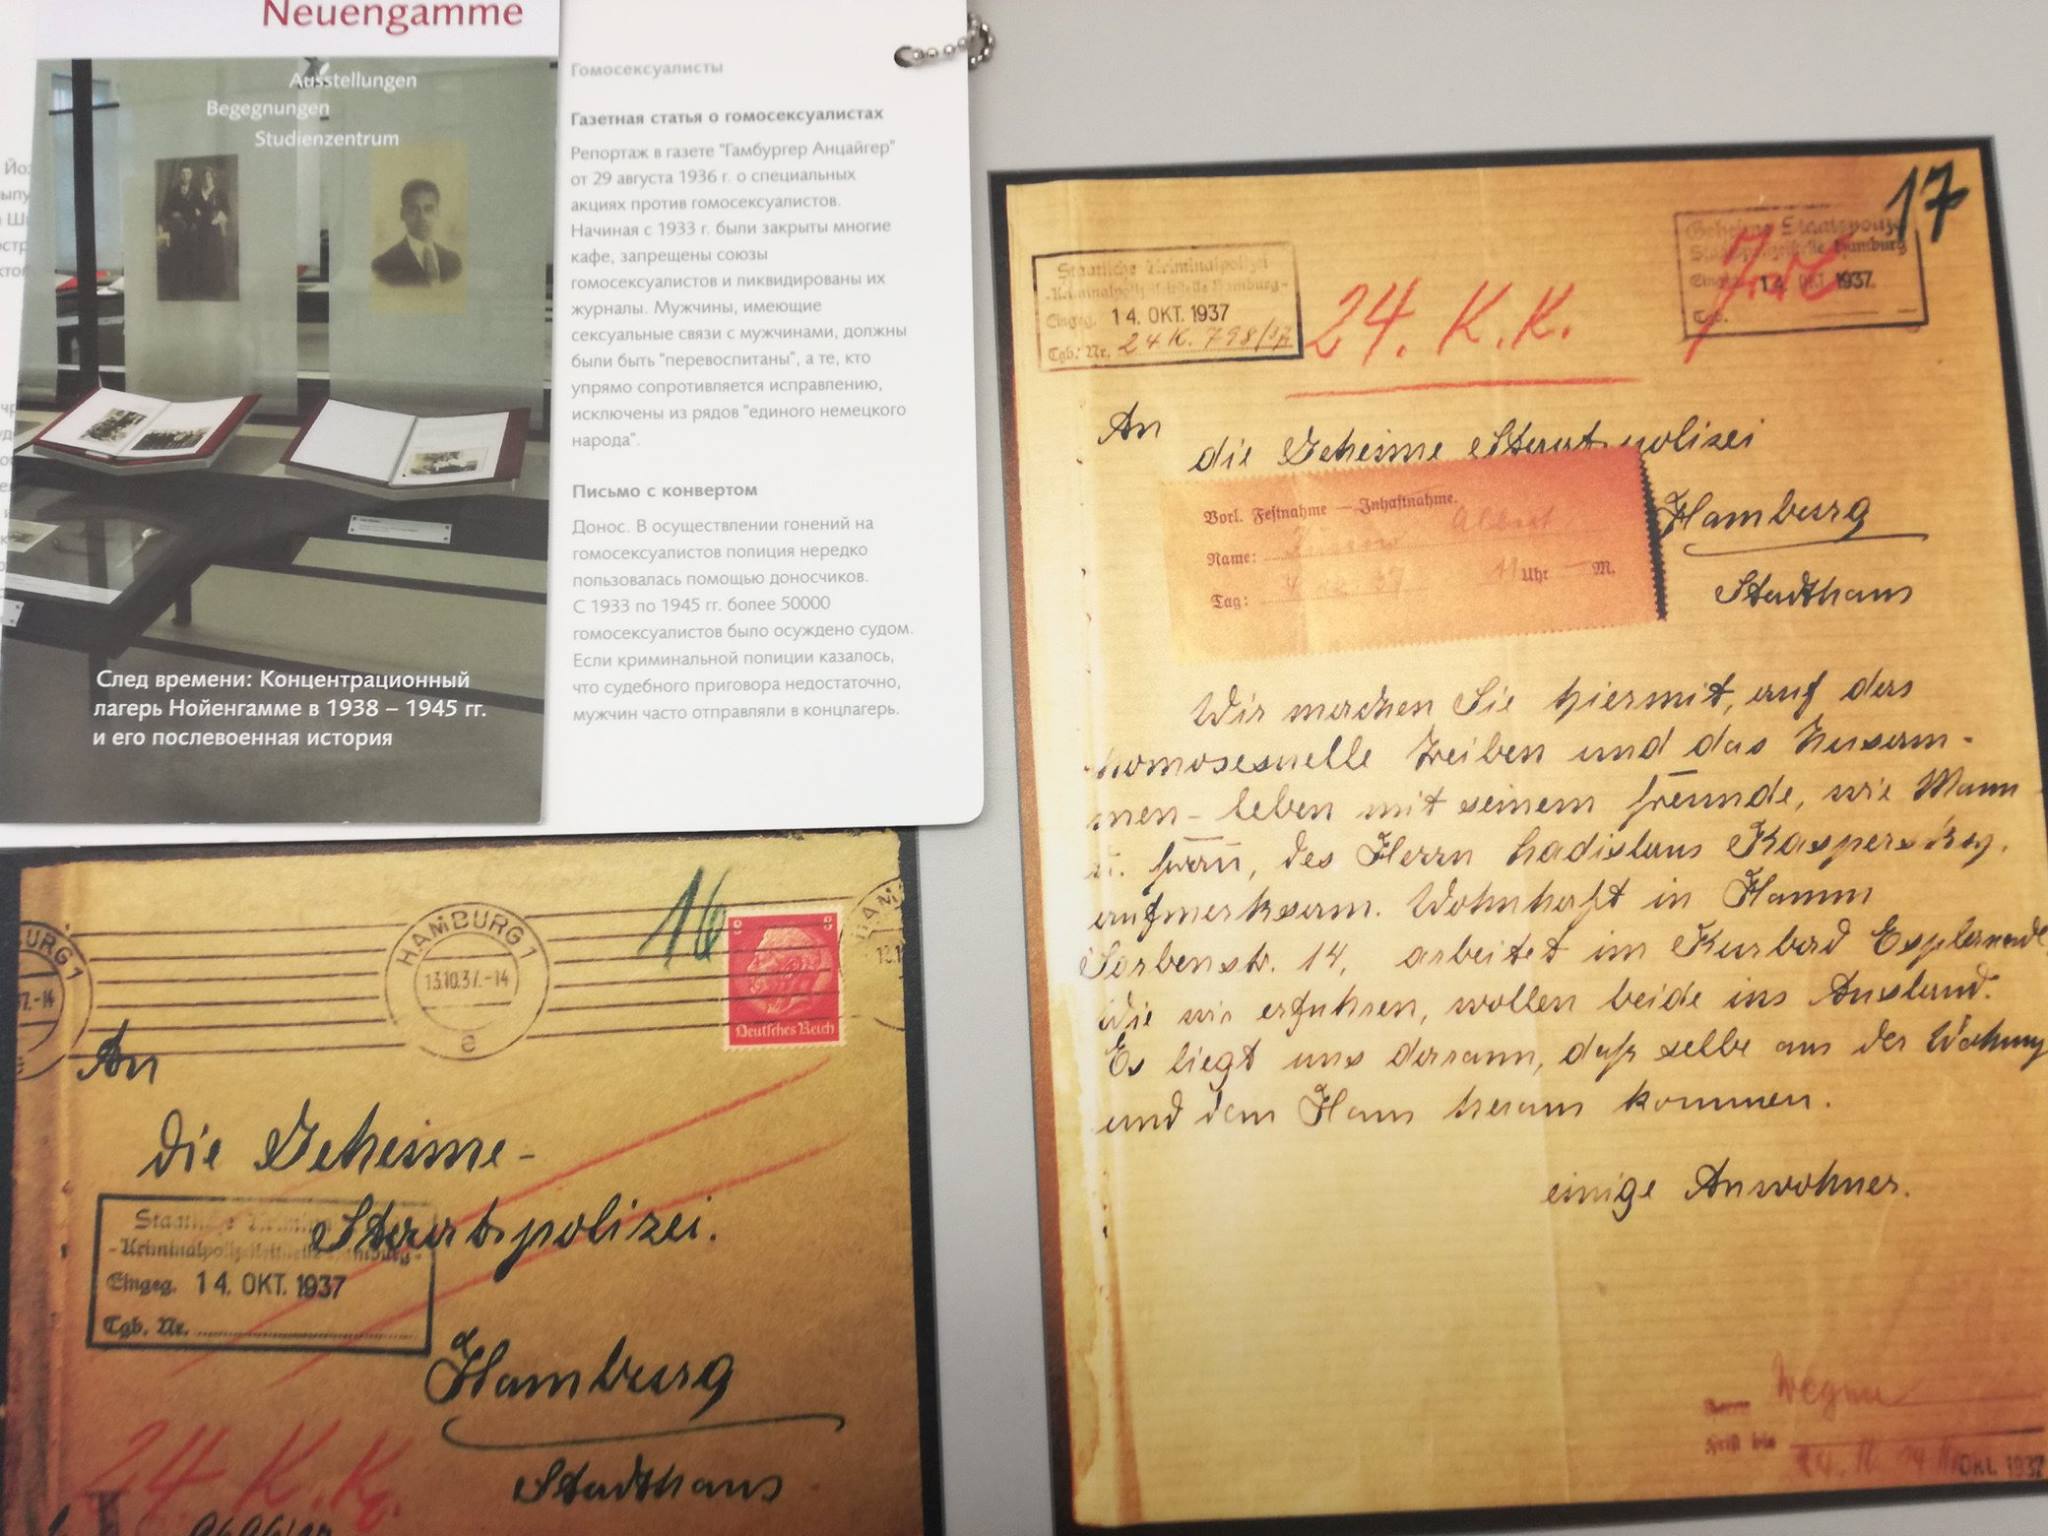 Neuengamme
Ausstellungen
Begegnungen
Studienzentrum
След времени: Концентрационный
лагерь Нойенгамме в 1938 – 1945 гг.
и его послевоенная история
Гомосексуалисты
Газетная статья о гомосексуалистах
Репортаж в газете "Гамбургер Анцайгер"
от 29 августа 1936 г. о специальных
акциях против гомосексуалистов.
Начиная с 1933 г. были закрыты многие
кафе, запрещены союзы
гомосексуалистов и ликвидированы их
журналы. Мужчины, имеющие
сексуальные связи с мужчинами, должны
были быть "перевоспитаны", а те, кто
упрямо сопротивляется исправлению,
исключены из рядов "единого немецкого
народа".
Письмо с конвертом
Донос. В осуществлении гонений на
гомосексуалистов полиция нередко
пользовалась помощью доносчиков.
С 1933 по 1945 гг. более 50000
гомосексуалистов было осуждено судом.
Если криминальной полиции казалось,
что судебного приговора недостаточно,
мужчин часто отправляли в концлагерь.
16
HAMBURG 1
13.10.37.-14
e
Deutsches Reich
An
die Geheime-
Staatspolizei.
Staatliche Kriminalpolizei
-Kriminalpolizeistelle Hamburg-
Eingeg. 14. OKT. 1937
Tgb. Nr.
Hamburg
Stadthaus
24 K.K.
17
Staatliche Kriminalpolizei
-Kriminalpolizeistelle Hamburg-
Eingeg. 14. OKT. 1937
Tgb. Nr. 24 K. 798/37
24. K.K.
Geheime Staatspolizei
Staatspolizeistelle Hamburg
Eingeg. 14. Okt. 1937.
Tgb.
An
die Geheime Staatspolizei
Hamburg
Stadthaus
Vorl. Festnahme — Inhaftnahme.
Name: Albert
Tag: 37 11 Uhr — M.
Wir machen Sie hiermit, auf das
homosexuelle Treiben und das Zusam-
men-leben mit seinem Freunde, wie Mann
u. Frau, des Herrn Ladislaus Kaspersky,
aufmerksam. Wohnhaft in Hamm
Sorbenstr. 14, arbeitet im Kurbad Esplanade
Wie wir erfuhren, wollen beide ins Ausland.
Es liegt uns daran, daß selbe aus der Wohnung
und dem Haus heraus kommen.
einige Anwohner.
Herrn Wegner
Frist bis
Okt. 1937